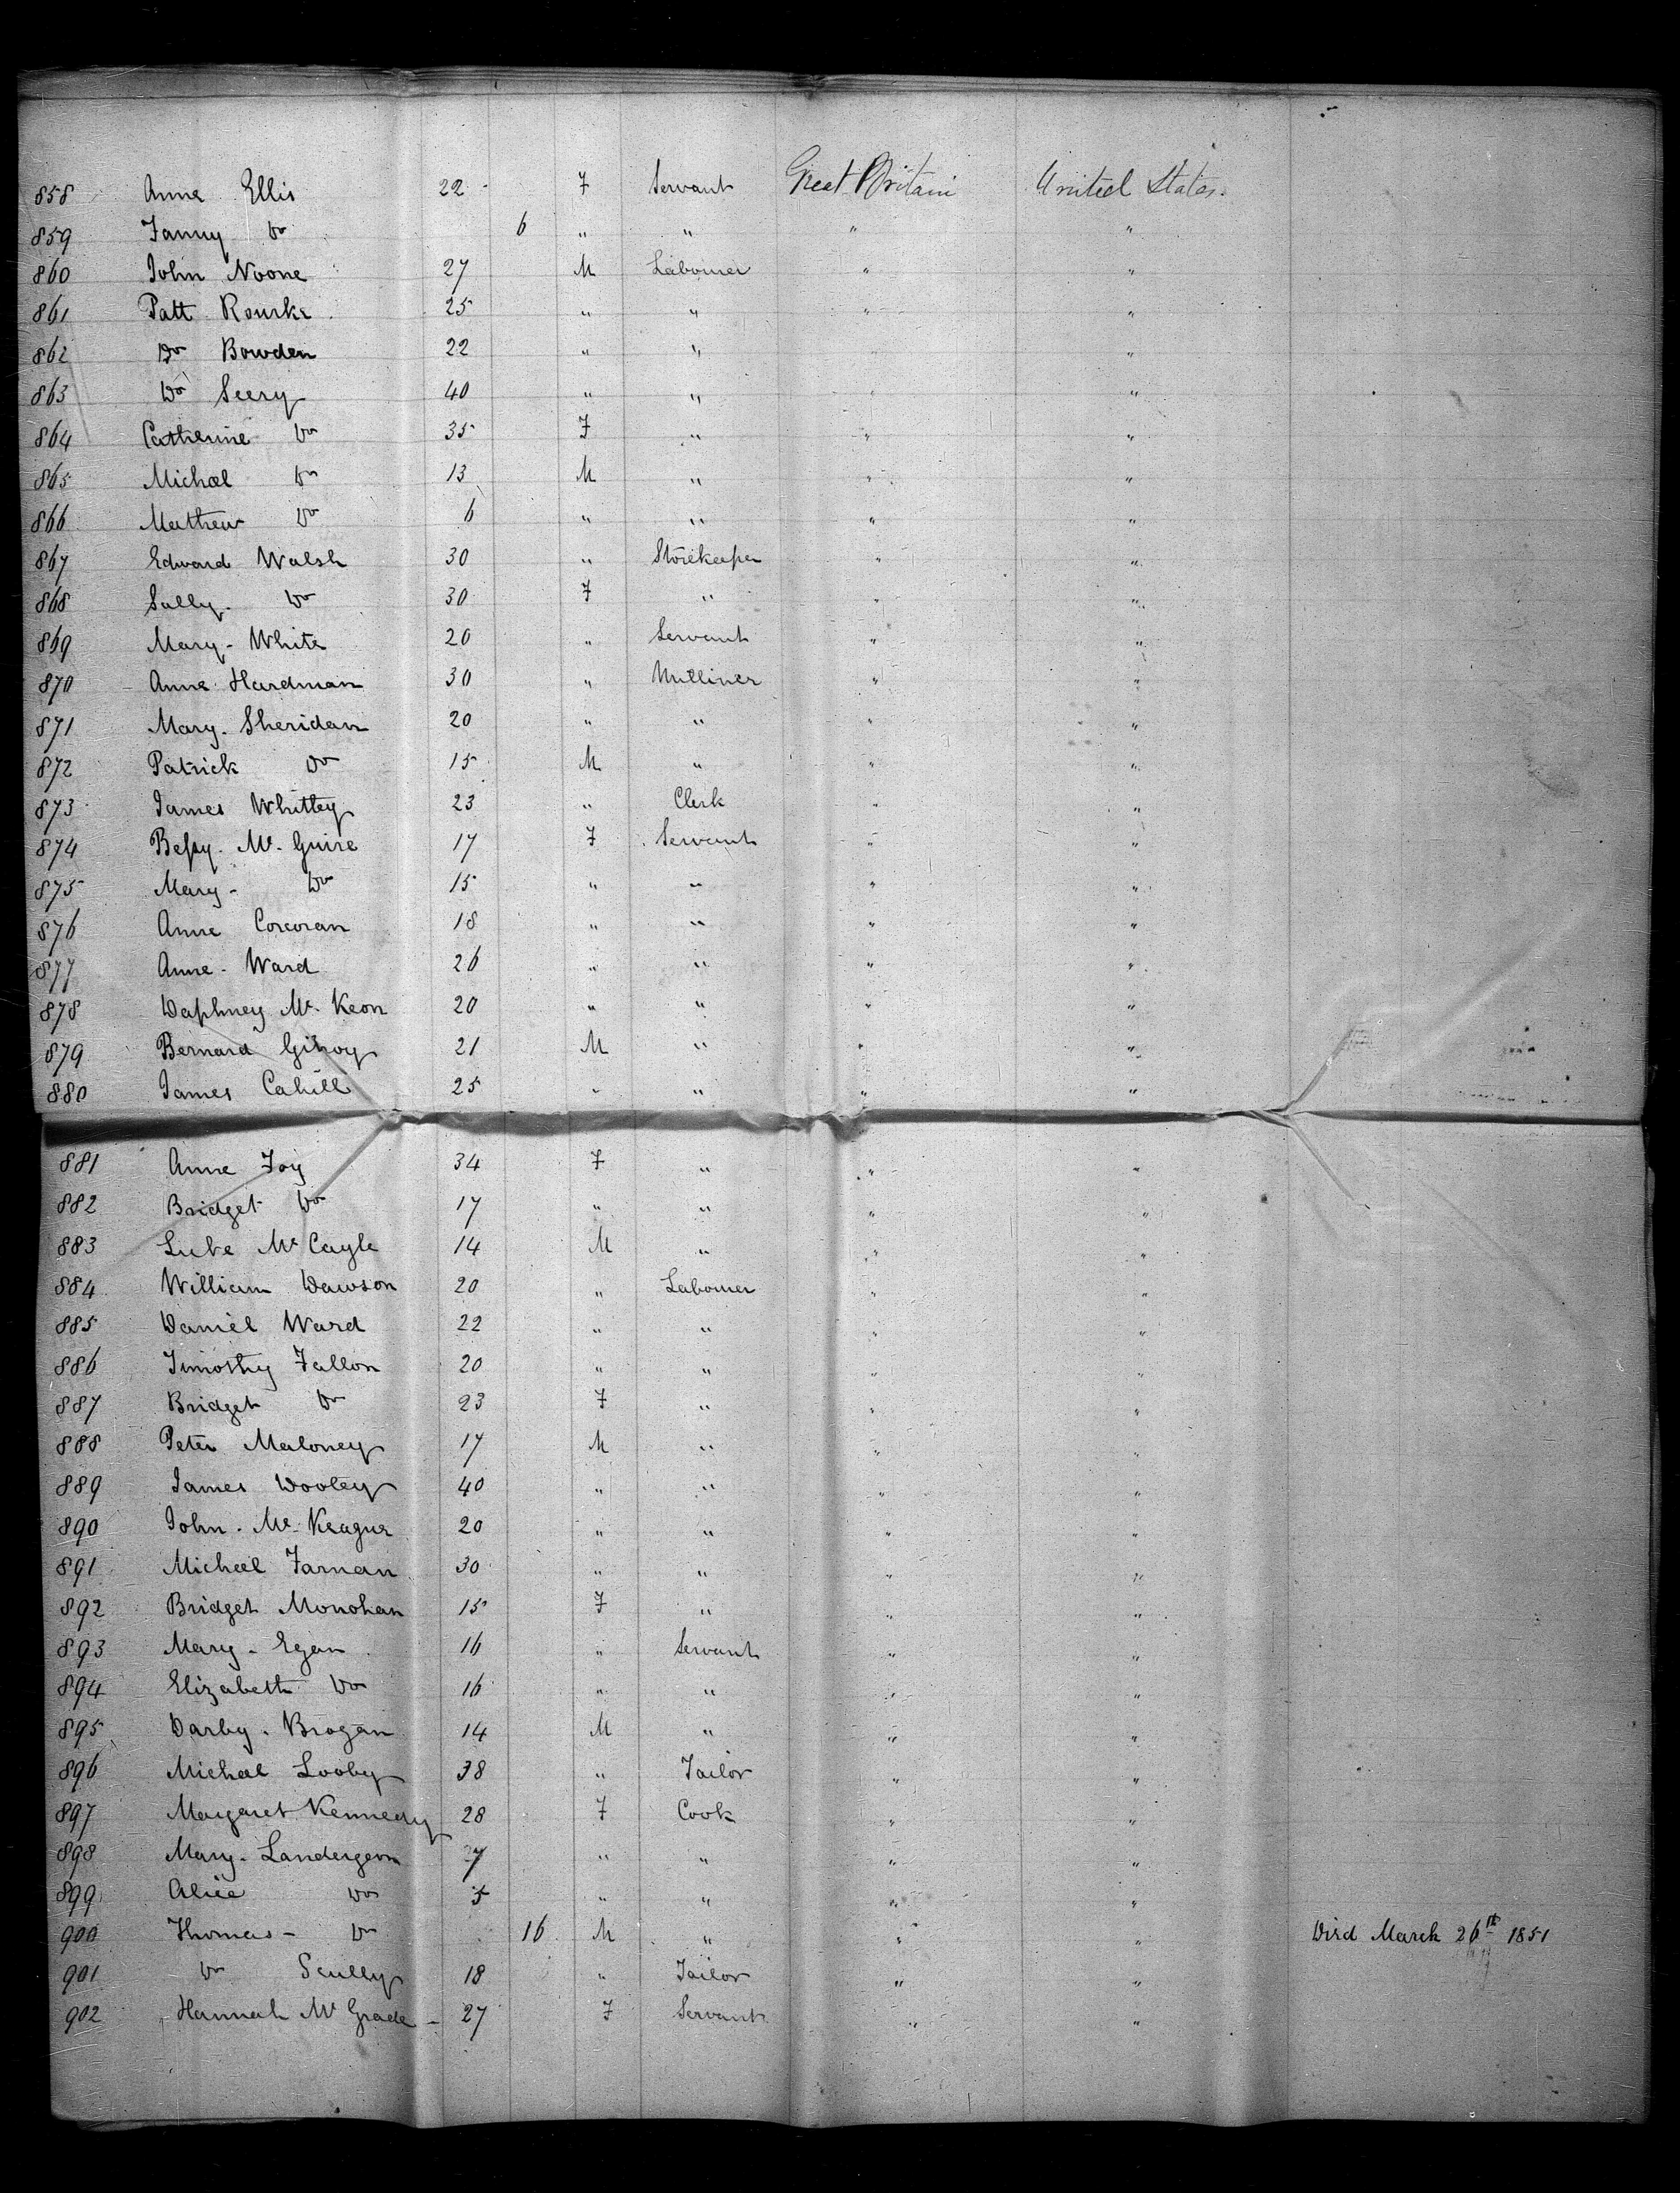 858 Anne Ellis 22 F Servant Great Britain United States.
859 Fanny Do 6 " " " "
860 John Noone 27 M Labourer " "
861 Patt Rourke 25 " " " "
862 Do Bowden 22 " " " "
863 Do Seery 40 " " " "
864 Catherine Do 35 F " " "
865 Michael Do 13 M " " "
866 Mathew Do 6 " " " "
867 Edward Walsh 30 " Storekeeper " "
868 Sally Do 30 F " " "
869 Mary White 20 " Servant " "
870 Anne Hardman 30 " Milliner " "
871 Mary Sheridan 20 " " " "
872 Patrick Do 15 M " " "
873 James Whitley 23 " Clerk " "
874 Bessy Mc Guire 17 F Servant " "
875 Mary Do 15 " " " "
876 Anne Corcoran 18 " " " "
877 Anne Ward 26 " " " "
878 Daphney Mc Keon 20 " " " "
879 Bernard Gilroy 21 M " " "
880 James Cahill 25 " " " "
881 Anne Foy 34 F " " "
882 Bridget Do 17 " " " "
883 Luke Mc Cayle 14 M " " "
884 William Dawson 20 " Labourer " "
885 Daniel Ward 22 " " " "
886 Timothy Fallon 20 " " " "
887 Bridget Do 23 F " " "
888 Peter Maloney 17 M " " "
889 James Dooley 40 " " " "
890 John Mc Keague 20 " " " "
891 Michael Farnan 30 " " " "
892 Bridget Monohan 15 F " " "
893 Mary Egan 16 " Servant " "
894 Elizabeth Do 16 " " " "
895 Darby Brogan 14 M " " "
896 Michael Looby 38 " Tailor " "
897 Margaret Kennedy 28 F Cook " "
898 Mary Landergem " " " "
899 Alice Do 5 " " " "
900 Thomas Do 16 M " " " Died March 26th 1851
901 Do Scully 18 " Tailor " "
902 Hannah Mc Grade 27 F Servant " "